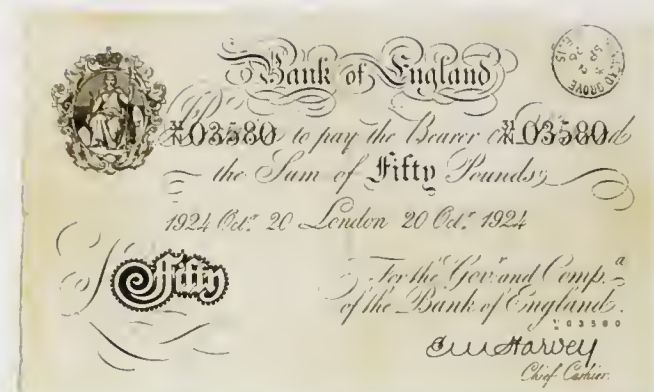 Bank of England
31/N 03580 to pay the Bearer on 31/N 03580
the Sum of Fifty Pounds
1924 Octr. 20 London 20 Octr. 1924
Fifty
For the Govr. and Compa.
of the Bank of England.
03580
C.M. Harvey
Chief Cashier.